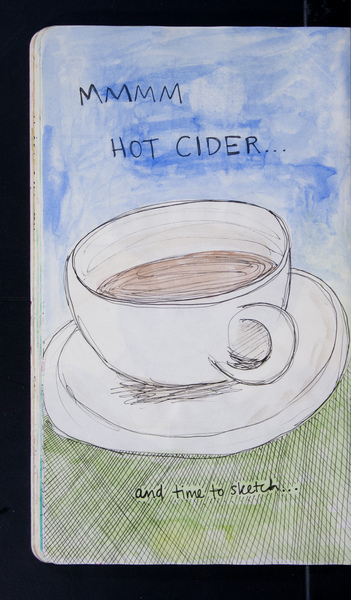 MMMM
HOT CIDER...
and time to sketch...